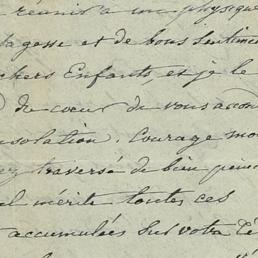 réunir à un physique
sagesse et de bons sentime
chers Enfants, et je le
du coeur de vous accor
nsolation. Courage mo
ez traversé de bien péni
el mérite toutes ces
accumulées sur votre té